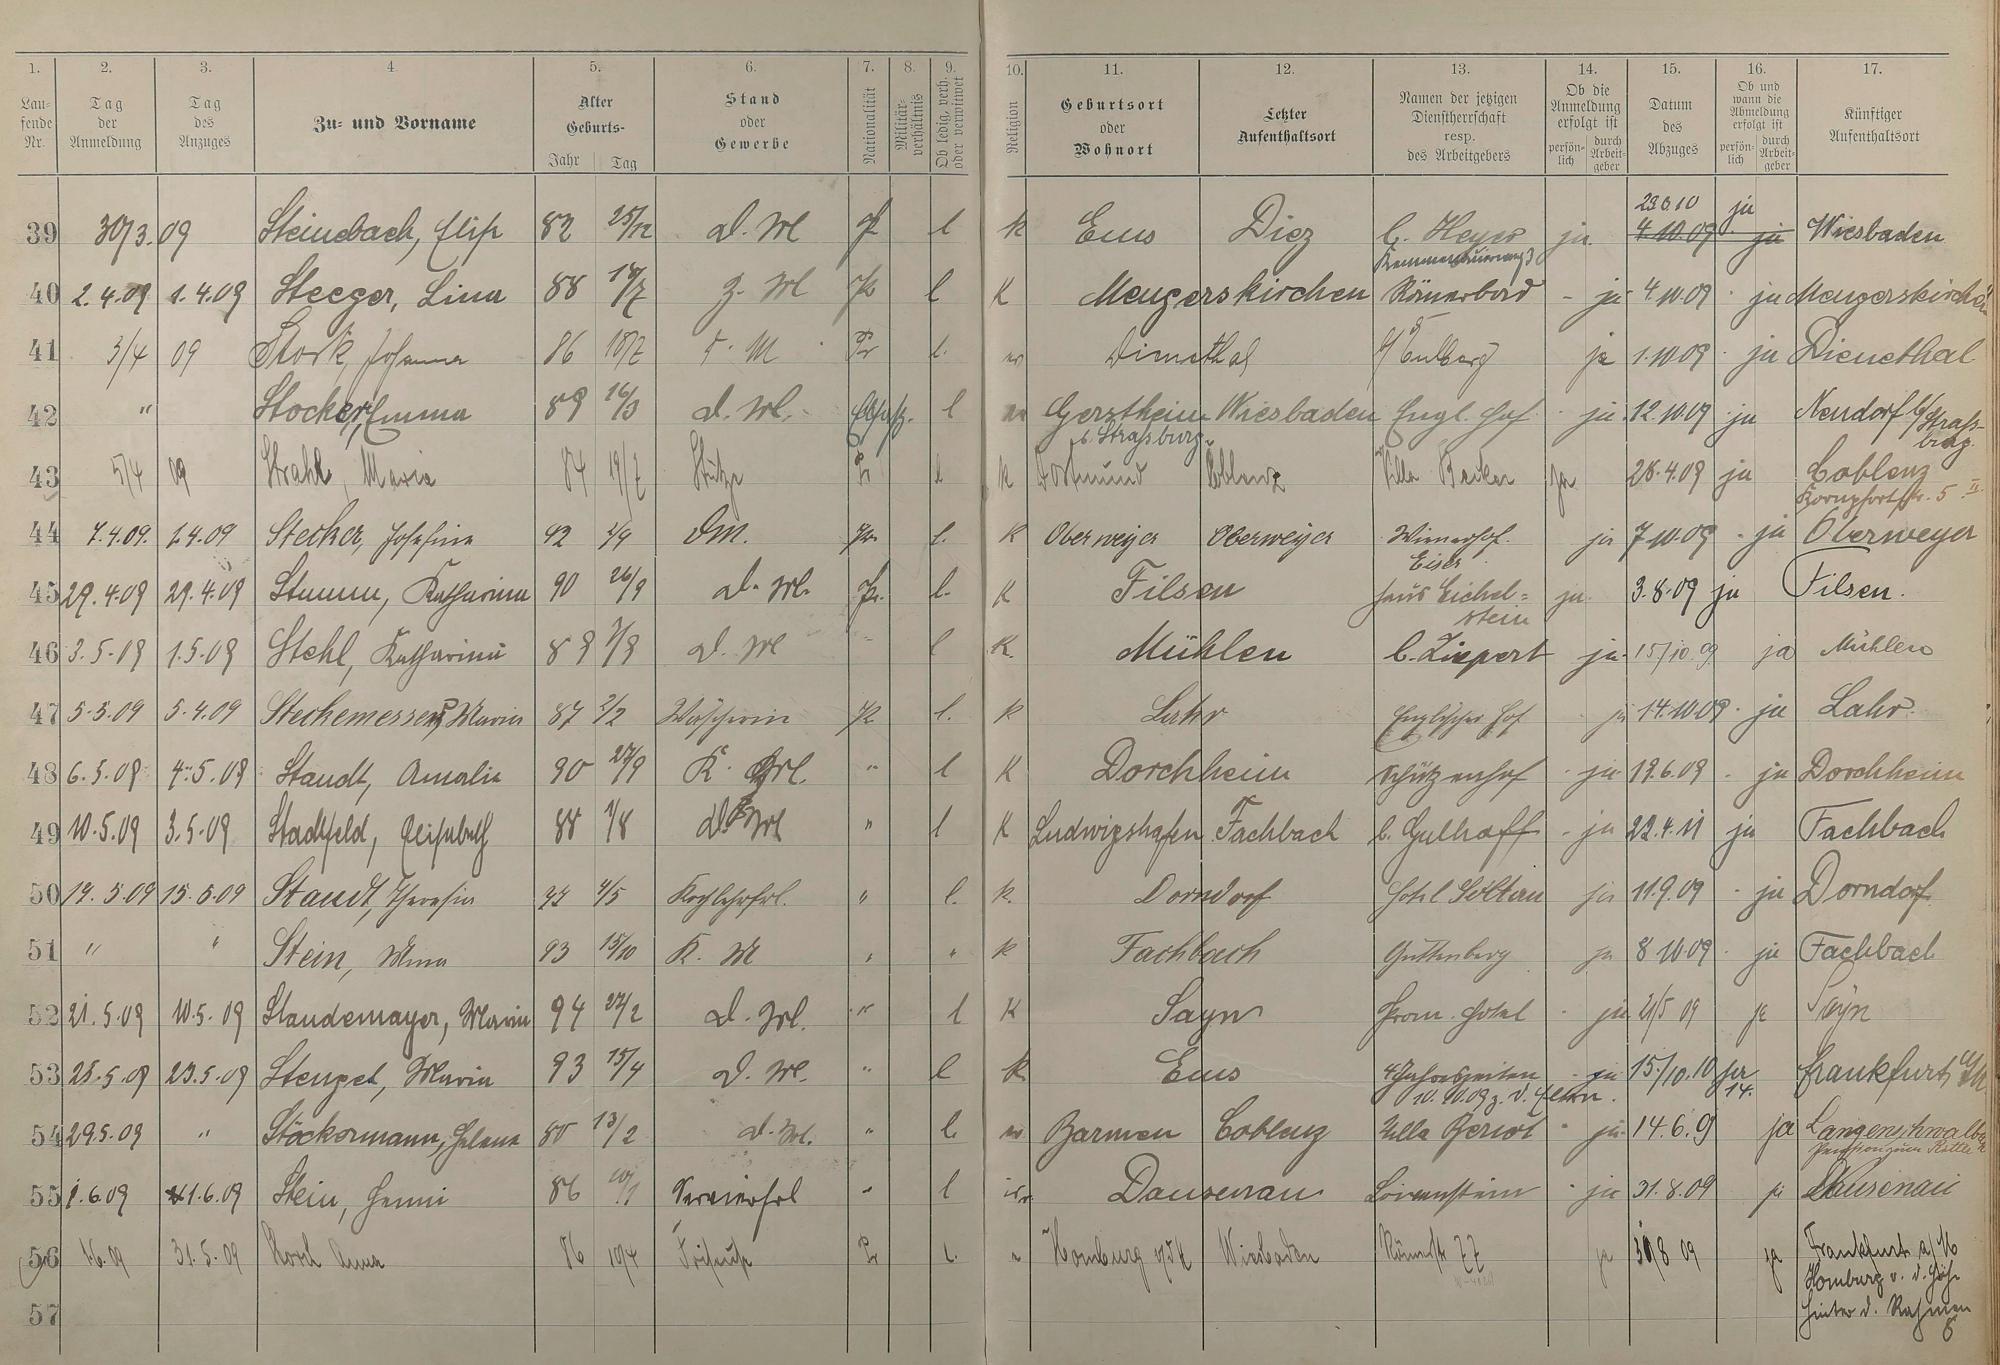 1. 2. 3. 4. 5. 6. 7. 8. 9. 10. 11. 12. 13. 14. 15. 16. 17.
Laufende Nr. Tag der Anmeldung Tag des Anzuges Zu- und Vorname Alter Geburts- Jahr Tag Stand oder Gewerbe Nationalität Militärverhältnis Ob ledig, verh. oder verwitwet Religion Geburtsort oder Wohnort Letzter Aufenthaltsort Namen der jetzigen Dienstherrschaft resp. des Arbeitgebers Ob die Anmeldung erfolgt ist persönlich durch Arbeitgeber Datum des Abzuges Ob und wann die Abmeldung erfolgt ist persönlich durch Arbeitgeber Künftiger Aufenthaltsort
23.6.10 ja
39 30/3. 09 Steinebach, 82 25/12 d. Ml l K Ems Diez C. Heyer ja 4.10.09 ja Wiesbaden
40 2.4.09 1.4.09 Steeger, Lina 88 Ml Pr l K Mengerskirchen Römerbad - ja 4.10.09 - ja Mengerskirchen
41 3/4 09 Stork, Johanna 86 18/7 Pr l. Dienethal ja 1.10.09 - ja Dienethal
42 " Stocker, Emma 89 16/3 d. Ml. l Gerstheim b. Straßburg. Wiesbaden Engl. Hof - ja 12.10.09 - ja Neudorf b/ Straßburg.
43 5/4 09 Strahl, Maria 84 19/7 Stütze Pr l K Dortmund Coblenz Villa Becker ja 28.4.09 ja Coblenz
5 II
44 7.4.09. 1.4.09 Stecker, Josefine 92 d M. Pr. l. K Oberweyer Oberweyer Wienerhof. ja 7.10.09 - ja Oberweyer
45 29.4.09 29.4.09 Stumm, Katharina 90 26/9 d. Ml. Pr. l. K Filsen Haus Eichel=
stein ja 3.8.09 ja Filsen.
46 3.5.09 1.5.09 Stehl, Katharina 89 d. Ml l K. Mühlen C. Liepert ja 15/10.09 ja Mühlen
47 5.5.09 5.4.09 Stechemesser, Maria 87 2/2 Wäscherin Pr l. K Lahr Englischer Hof - ja 14.10.09 - ja Lahr.
48 6.5.09 4.5.09 Staudt, Amalie 90 27/9 K. Ml. " l K Dorchheim Schützenhof - ja 19.6.09 - ja Dorchheim
49 10.5.09 3.5.09 Stadtfeld, Elisabeth 88 1/8 d. Ml " l K Ludwigshafen Fachbach - ja 22.4.11 ja Fachbach
50 19.5.09 15.5.09 Staudt, Theresia 4/5 Kochlehrfrl. " l. K. Dorndorf Hotel ja 11.9.09 - ja Dorndorf
51 " " Stein, 93 15/10 K. M " " K Fachbach Guttenberg ja 8.10.09 - ja Fachbach
52 21.5.09 10.5.09 Staudemayer, Maria 94 27/2 d. Ml. " l K Sayn Prom. Hotel - ja 21/5 09 ja Sayn
53 25.5.09 23.5.09 Stengel, Maria 93 15/4 d. Ml. " l K Ems 4 Jahreszeiten - ja 15./10.10 Frankfurt a/M
10.10.09 z. d. Eltern. 14.
54 29.5.09 " Stöckermann, Helene 80 13/2 d. Ml. " l. Barmen Coblenz Villa Beriot - ja 14.6.09 ja Langenschwalbach
55 1.6.09 1.6.09 Stein, Henni 86 Servierfrl " l isr. Dausenau Löwenstein - ja 31.8.09 ja Dausenau
56 1.6.09 31.5.09 Anna 86 10/4 Friseuse Pr l. Homburg v/d H Wiesbaden Römerstr 77 ja 30/8 09 ja Frankfurt a/M
Homburg v. d. Höhe
Hinter d. Rahmen
8
57